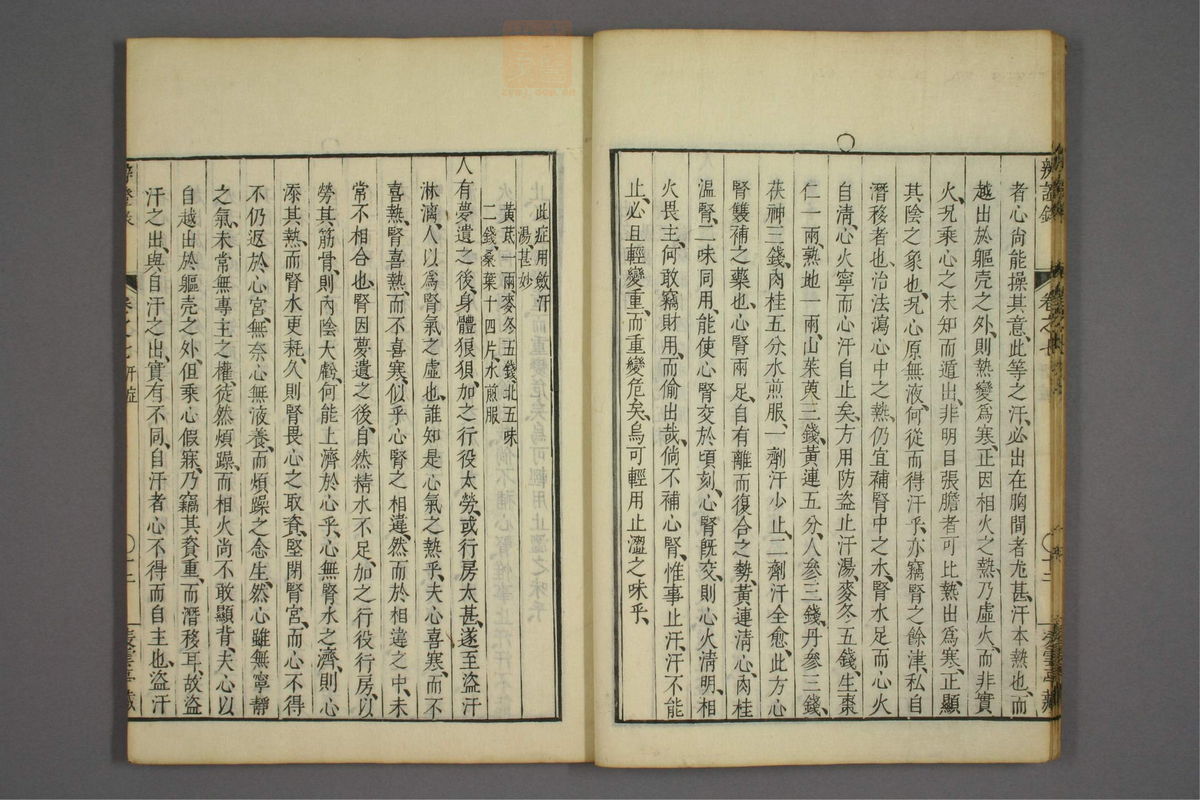 辨證錄 卷之七
者心尚能操其意、此等之汗、必出在胸間者尤甚、汗本熱也、而
越出於軀壳之外、則熱變爲寒、正因相火之熱、乃虛火、而非實
火、况乘心之未知而遁出、非明目張膽者可比、熱出爲寒、正顯
其陰之象也、况心原無液、何從而得汗乎、亦竊腎之餘津、私自
潛移者也、治法瀉心中之熱、仍宜補腎中之水、腎水足而心火
自清、心火寧而心汗自止矣、方用防盜止汗湯、麥冬五錢、生棗
仁一兩、熟地一兩、山茱萸三錢、黃連五分、人參三錢、丹參三錢、
茯神三錢、肉桂五分、水煎服、一劑汗少止、二劑汗全愈、此方心
腎雙補之藥也、心腎兩足、自有離而復合之勢、黃連清心、肉桂
溫腎、二味同用、能使心腎交於頃刻、心腎既交、則心火清明、相
火畏主、何敢竊財用、而偷出哉、倘不補心腎、惟事止汗、汗不能
止、必且輕變重、而重變危矣、烏可輕用止澀之味乎、
此症用斂汗
湯、甚妙
黃芪一兩麥冬五錢北五味
二錢、桑葉十四片、水煎服
人有夢遺之後、身體狼狽、加之行役太勞、或行房太甚、遂至盜汗
淋漓、人以爲腎氣之虛也、誰知是心氣之熱乎、夫心喜寒、而不
喜熱、腎喜熱、而不喜寒、似乎心腎之相違、然而於相違之中、未
常不相合也、腎因夢遺之後、自然精水不足、加之行役行房、以
勞其筋骨、則內陰大虧、何能上濟於心乎、心無腎水之濟、則心
添其熱、而腎水更耗、久則腎畏心之取資、堅閉腎宮、而心不得
不仍返於心宮、無奈心無液養、而煩躁之念生、然心雖無寧靜
之氣、未常無專主之權、徒然煩躁、而相火尚不敢顯背、夫心以
自越出於軀壳之外、但乘心假寐、乃竊其資重、而潛移耳、故盜
汗之出、與自汗之出、實有不同、自汗者心不得而自主也、盜汗
辨證錄 卷之七汗症